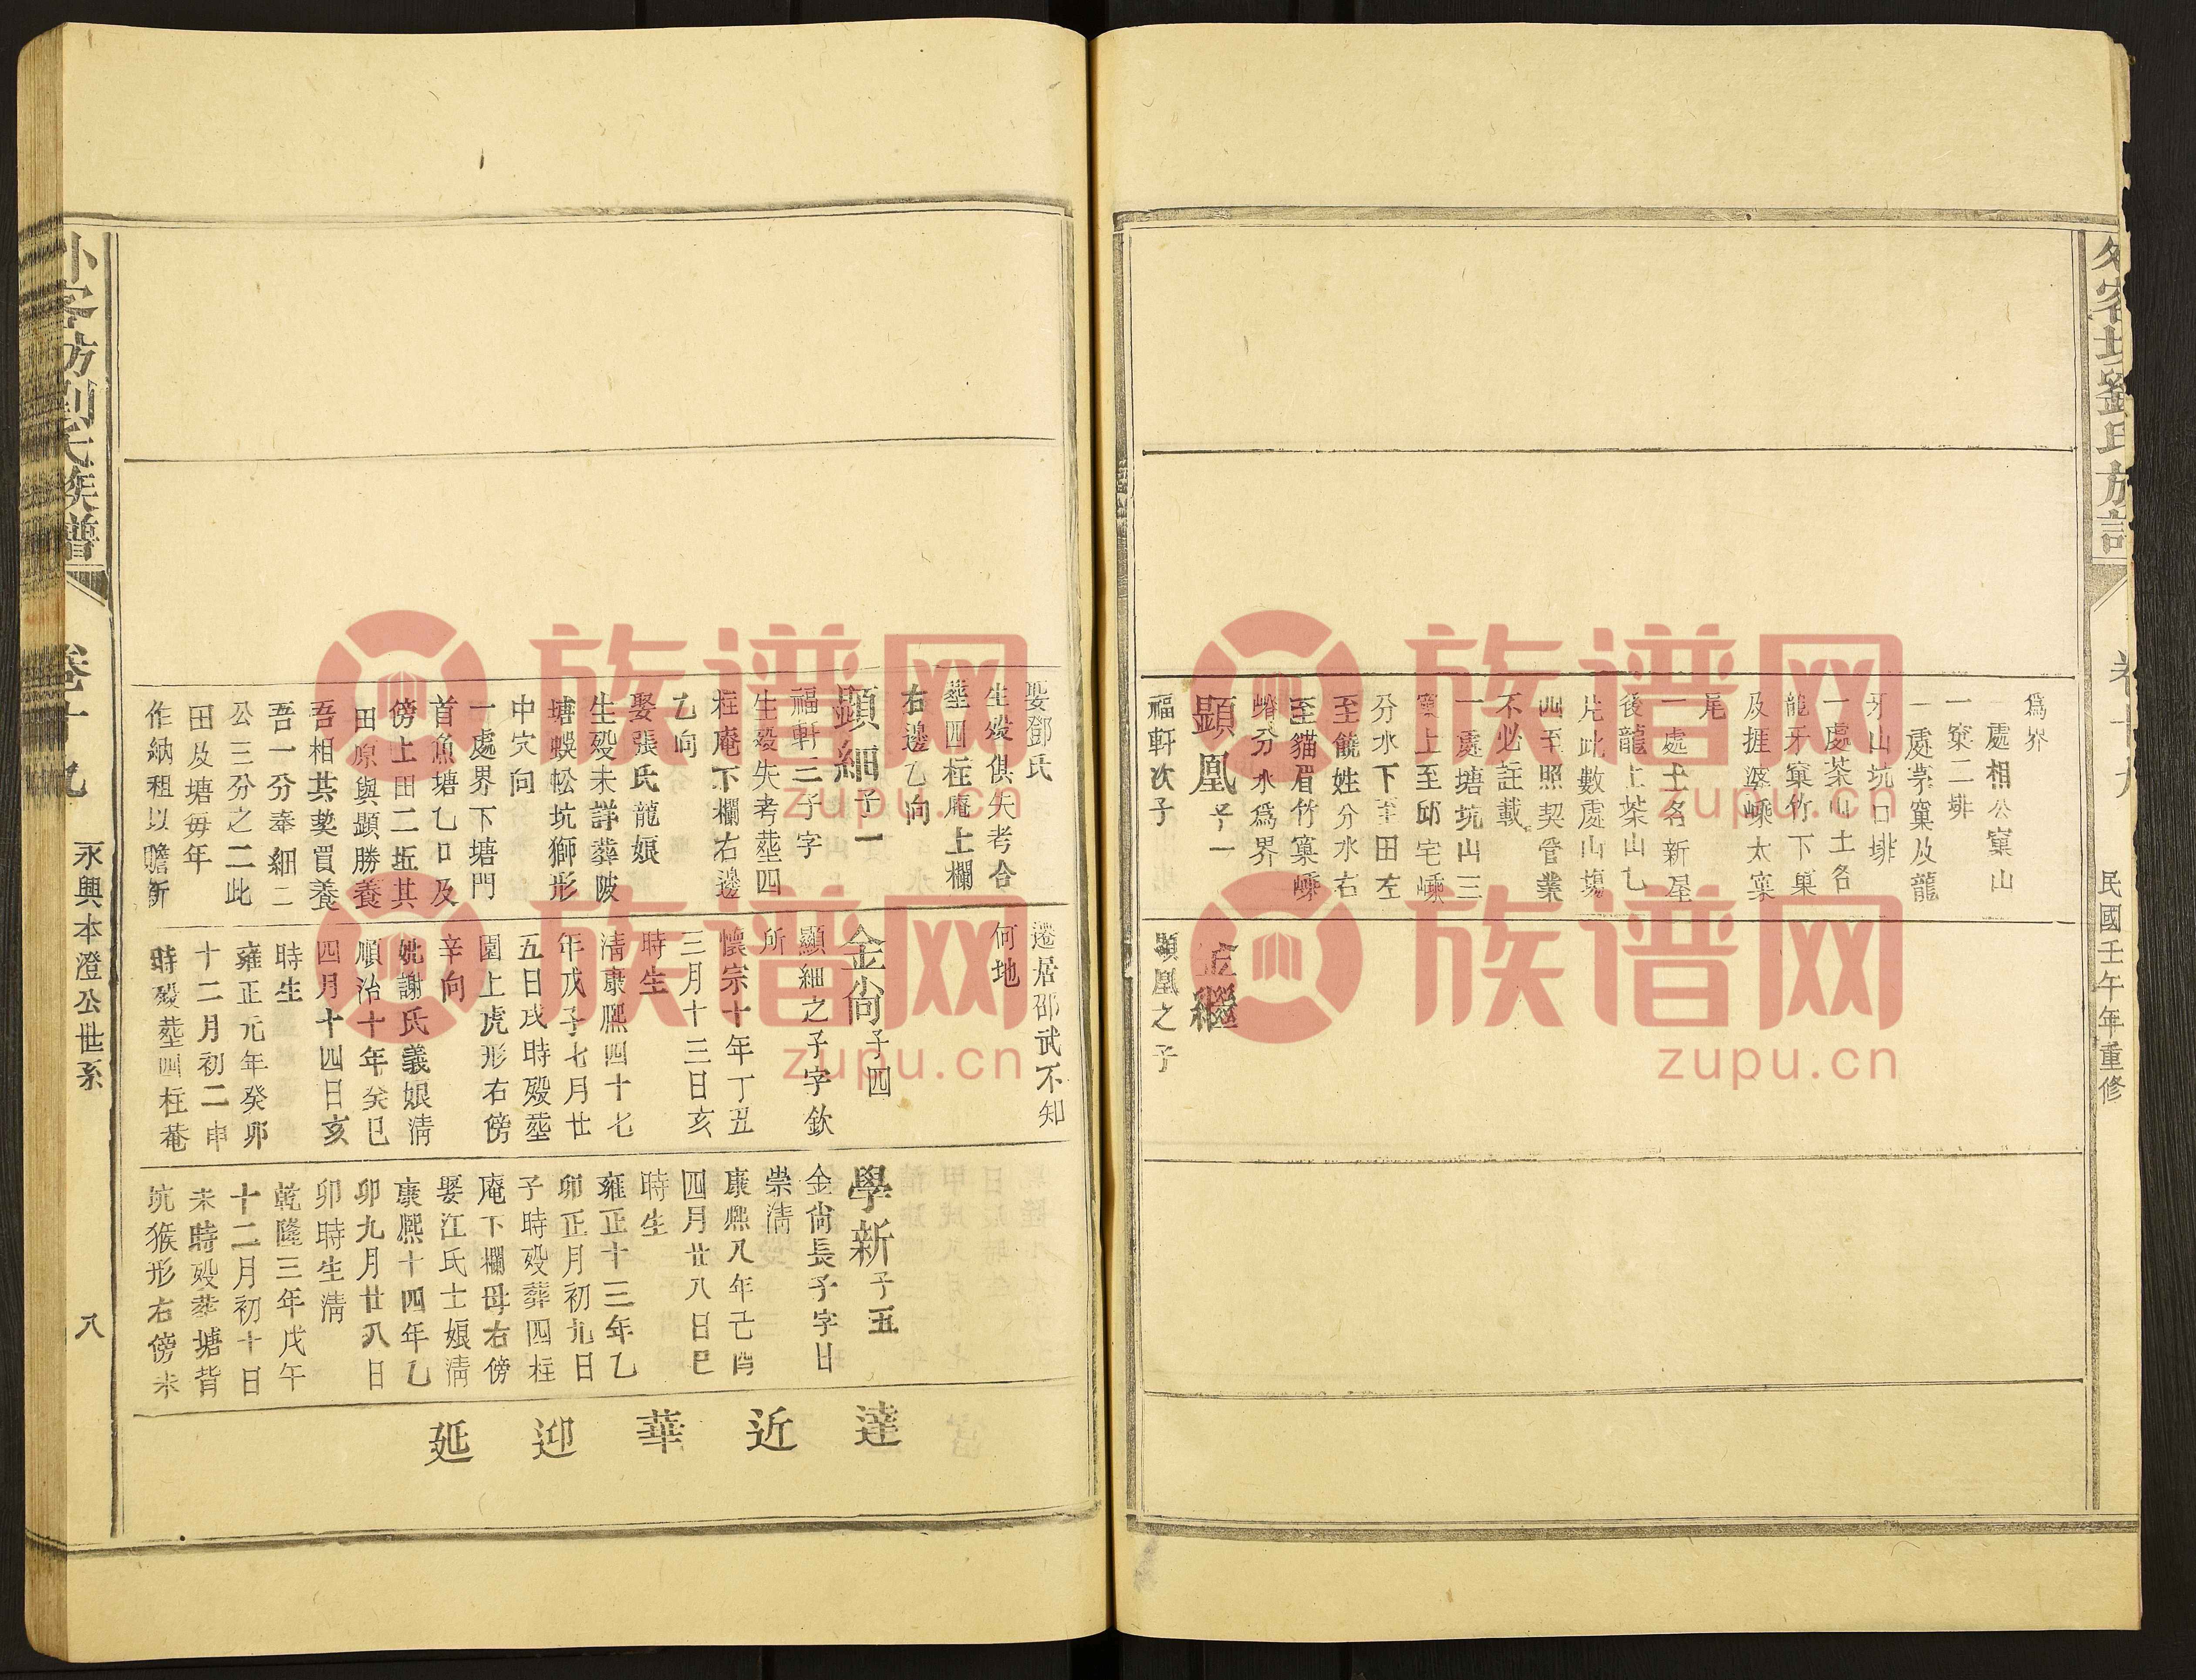 劉氏族
民國壬午年重修
爲界
一處相公窠山
一窠二排
牙山坑口排
一處茶山土名
龍牙窠竹下窠
及捱婆嵊太窠
尾
一處土名新屋
後龍上茶山七
片此數處山塲
四至照契管業
不必註載
一處塘坑山三
窠上至邱宅嵊
分水下至田左
至饒姓分水右
至貓眉竹窠嵊
分水爲界
顯凰子一
福軒次子
金繼
顯凰之子
娶鄧氏
生歿俱失考合
塟四柱庵上欄
右邊乙向
顯細子一
福軒三子字
生歿失考塟四
柱庵下欄右邊
乙向
娶張氏龍娘
生歿未詳葬陂
塘蜈蚣坑獅形
中穴向
一處界下塘門
首魚塘乜口及
傍上田二坵其
田原與顯勝養
吾相共契買養
吾一分奉細二
公三分之二此
田及塘每年
作納租以贍新
遷居邵武不知
何地
金尙子四
顯細之子字欽
所
懷宗十年丁丑
三月十三日亥
時生
淸康熙四十七
年戊子七月廿
五日戌時歿塟
園上虎形右傍
辛向
妣謝氏義娘淸
順治十年癸巳
四月十四日亥
時生
雍正元年癸卯
十二月初二申
時歿塟四柱菴
學新子五
金尙長子字日
崇淸
康熙八年己酉
四月廿八日巳
時生
雍正十三年乙
卯正月初九日
子時歿葬四柱
庵下欄母右傍
娶江氏士娘淸
康熙十四年乙
卯九月廿八日
卯時生淸
乾隆三年戊午
十二月初十日
未時歿葬塘背
坑猴形右傍未
達
近
華
迎
延
劉氏族譜
卷十九
永興本澄公世系
八
族谱网
zupu.cn
族谱网
zupu.cn
族谱网
zupu.cn
族谱网
zupu.cn